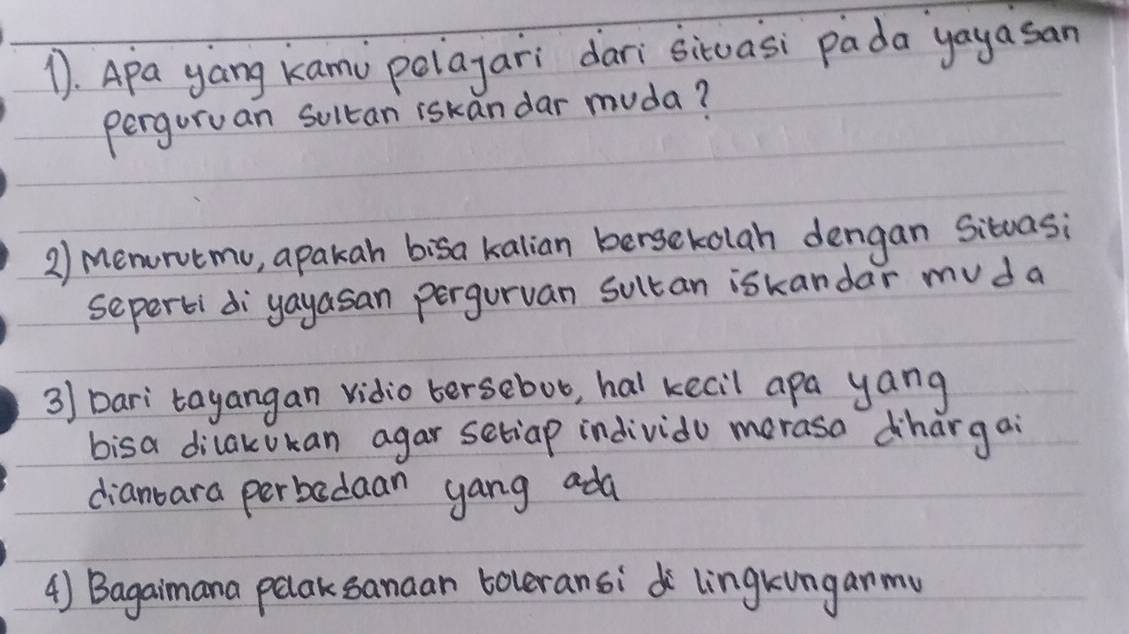 1). Apa yang kamu pelajari dari situasi pada yayasan
perguruan sultan iskandar muda?
2) Menurutmu, apakah bisa kalian bersekolah dengan situasi
seperti di yayasan perguruan sultan iskandar muda
3) Dari tayangan vidio tersebut, hal kecil apa yang
bisa dilakukan agar setiap individu merasa dihargai
diantara perbedaan yang ada
4) Bagaimana pelaksanaan toleransi di lingkunganmu